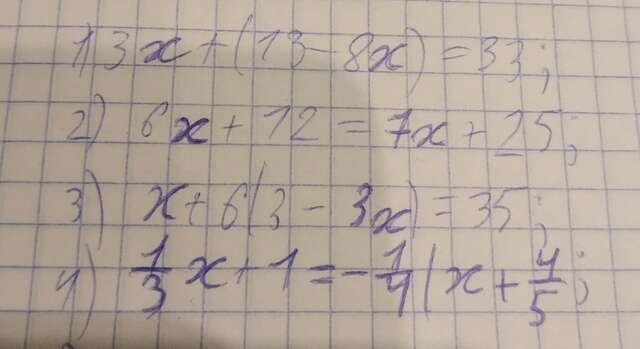 1) 3x + (13 - 8x) = 33;
2) 6x + 12 = 7x + 25;
3) x + 6(3 - 3x) = 35;
4) 1/3 x + 1 = - 1/4 (x + 4/5;